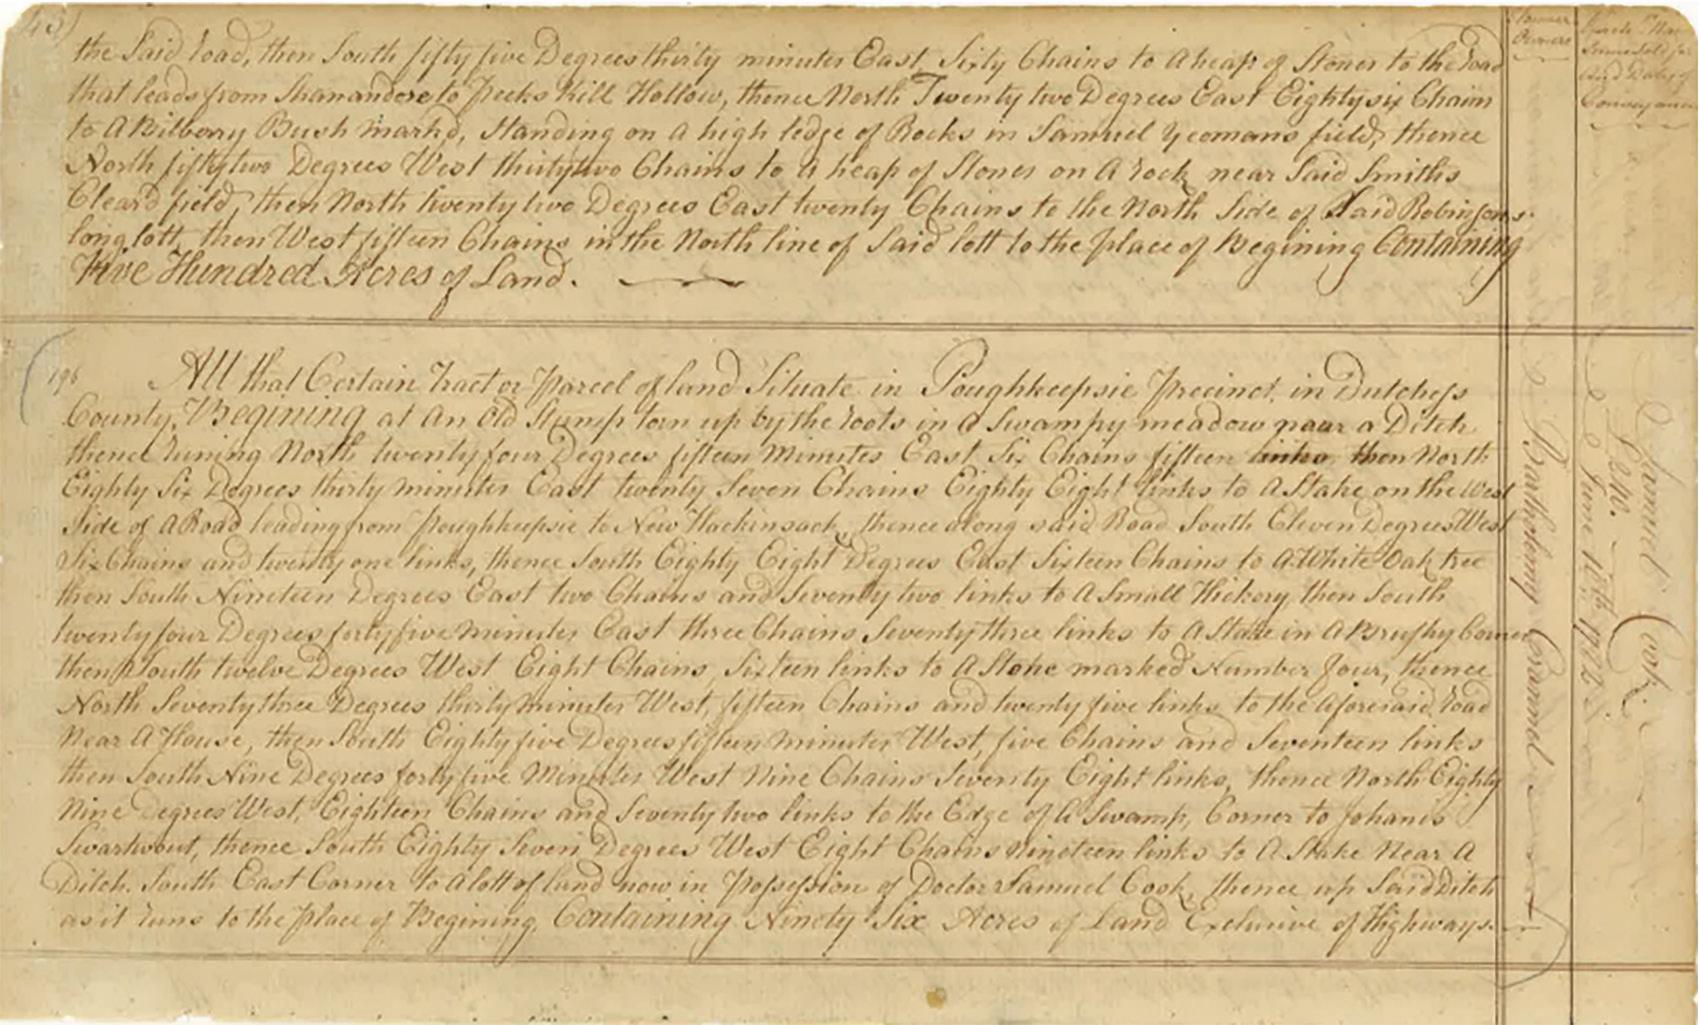 43)
the Said road, then South fifty five Degrees thirty minutes East, Sixty Chains to A heap of Stones to the Road
that leads from Shanandore to Peeks Kill Hollow, thence North Twenty two Degrees East Eighty six Chains
to A Bilberry Bush markd, Standing on A high ledge of Rocks in Samuel Yeomans field, thence
North fifty two Degrees West thirty two Chains to A heap of Stones on A rock near Said Smiths
Cleard field, then North twenty two Degrees East twenty Chains to the North Side of Said Robinsons
long lott, then West fifteen Chains in the North line of Said lott to the place of Begining Containing
Five Hundred Acres of Land.
196
All that Certain Tract or Parcel of land Situate in Poughkeepsie Precinct, in Dutchess
County, Begining at An Old Stump torn up by the roots in A Swampy meadow near a Ditch
thence runing North twenty four Degrees fifteen Minutes East Six Chains fifteen links, then North
Eighty Six Degrees thirty minutes East twenty Seven Chains Eighty Eight links to A Stake on the West
Side of A Road leading from Poughkeepsie to New Hackinsack, thence along said Road South Eleven Degrees West
Six Chains and twenty one links, thence South Eighty Eight Degrees East Sixteen Chains to A White Oak tree
then South Nineteen Degrees East two Chains and Seventy two links to A Small Hickory then South
twenty four Degrees forty five minutes East three Chains Seventy three links to A Stake in A Brushy Corner
then South twelve Degrees West Eight Chains Sixteen links to A Stone marked Number four, thence
North Seventy three Degrees thirty minutes West, fifteen Chains and twenty five links to the Aforesaid road
Near A House, then South Eighty five Degrees fifteen minutes West, five Chains and Seventeen links
then South Nine Degrees forty five Minutes West Nine Chains Seventy Eight links, thence North Eighty
Nine Degrees West, Eighteen Chains and Seventy two links to the Edge of A Swamp, Corner to Johanis
Swartwout, thence South Eighty Seven Degrees West Eight Chains nineteen links to A Stake Near A
Ditch. South East Corner to A lott of land now in Possession of Doctor Samuel Cook, thence up Said Ditch
as it runs to the place of Begining, Containing Ninety Six Acres of Land Exclusive of Highways.
Former
Owners
Bartholomew Crannel
Conveyance
Samuel Cook
June 16th